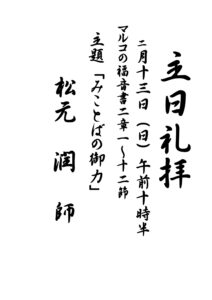 主日礼拝
二月十三日（日）午前十時半
マルコの福音書二章一～十二節
主題「みことばの御力」
松元　潤　師